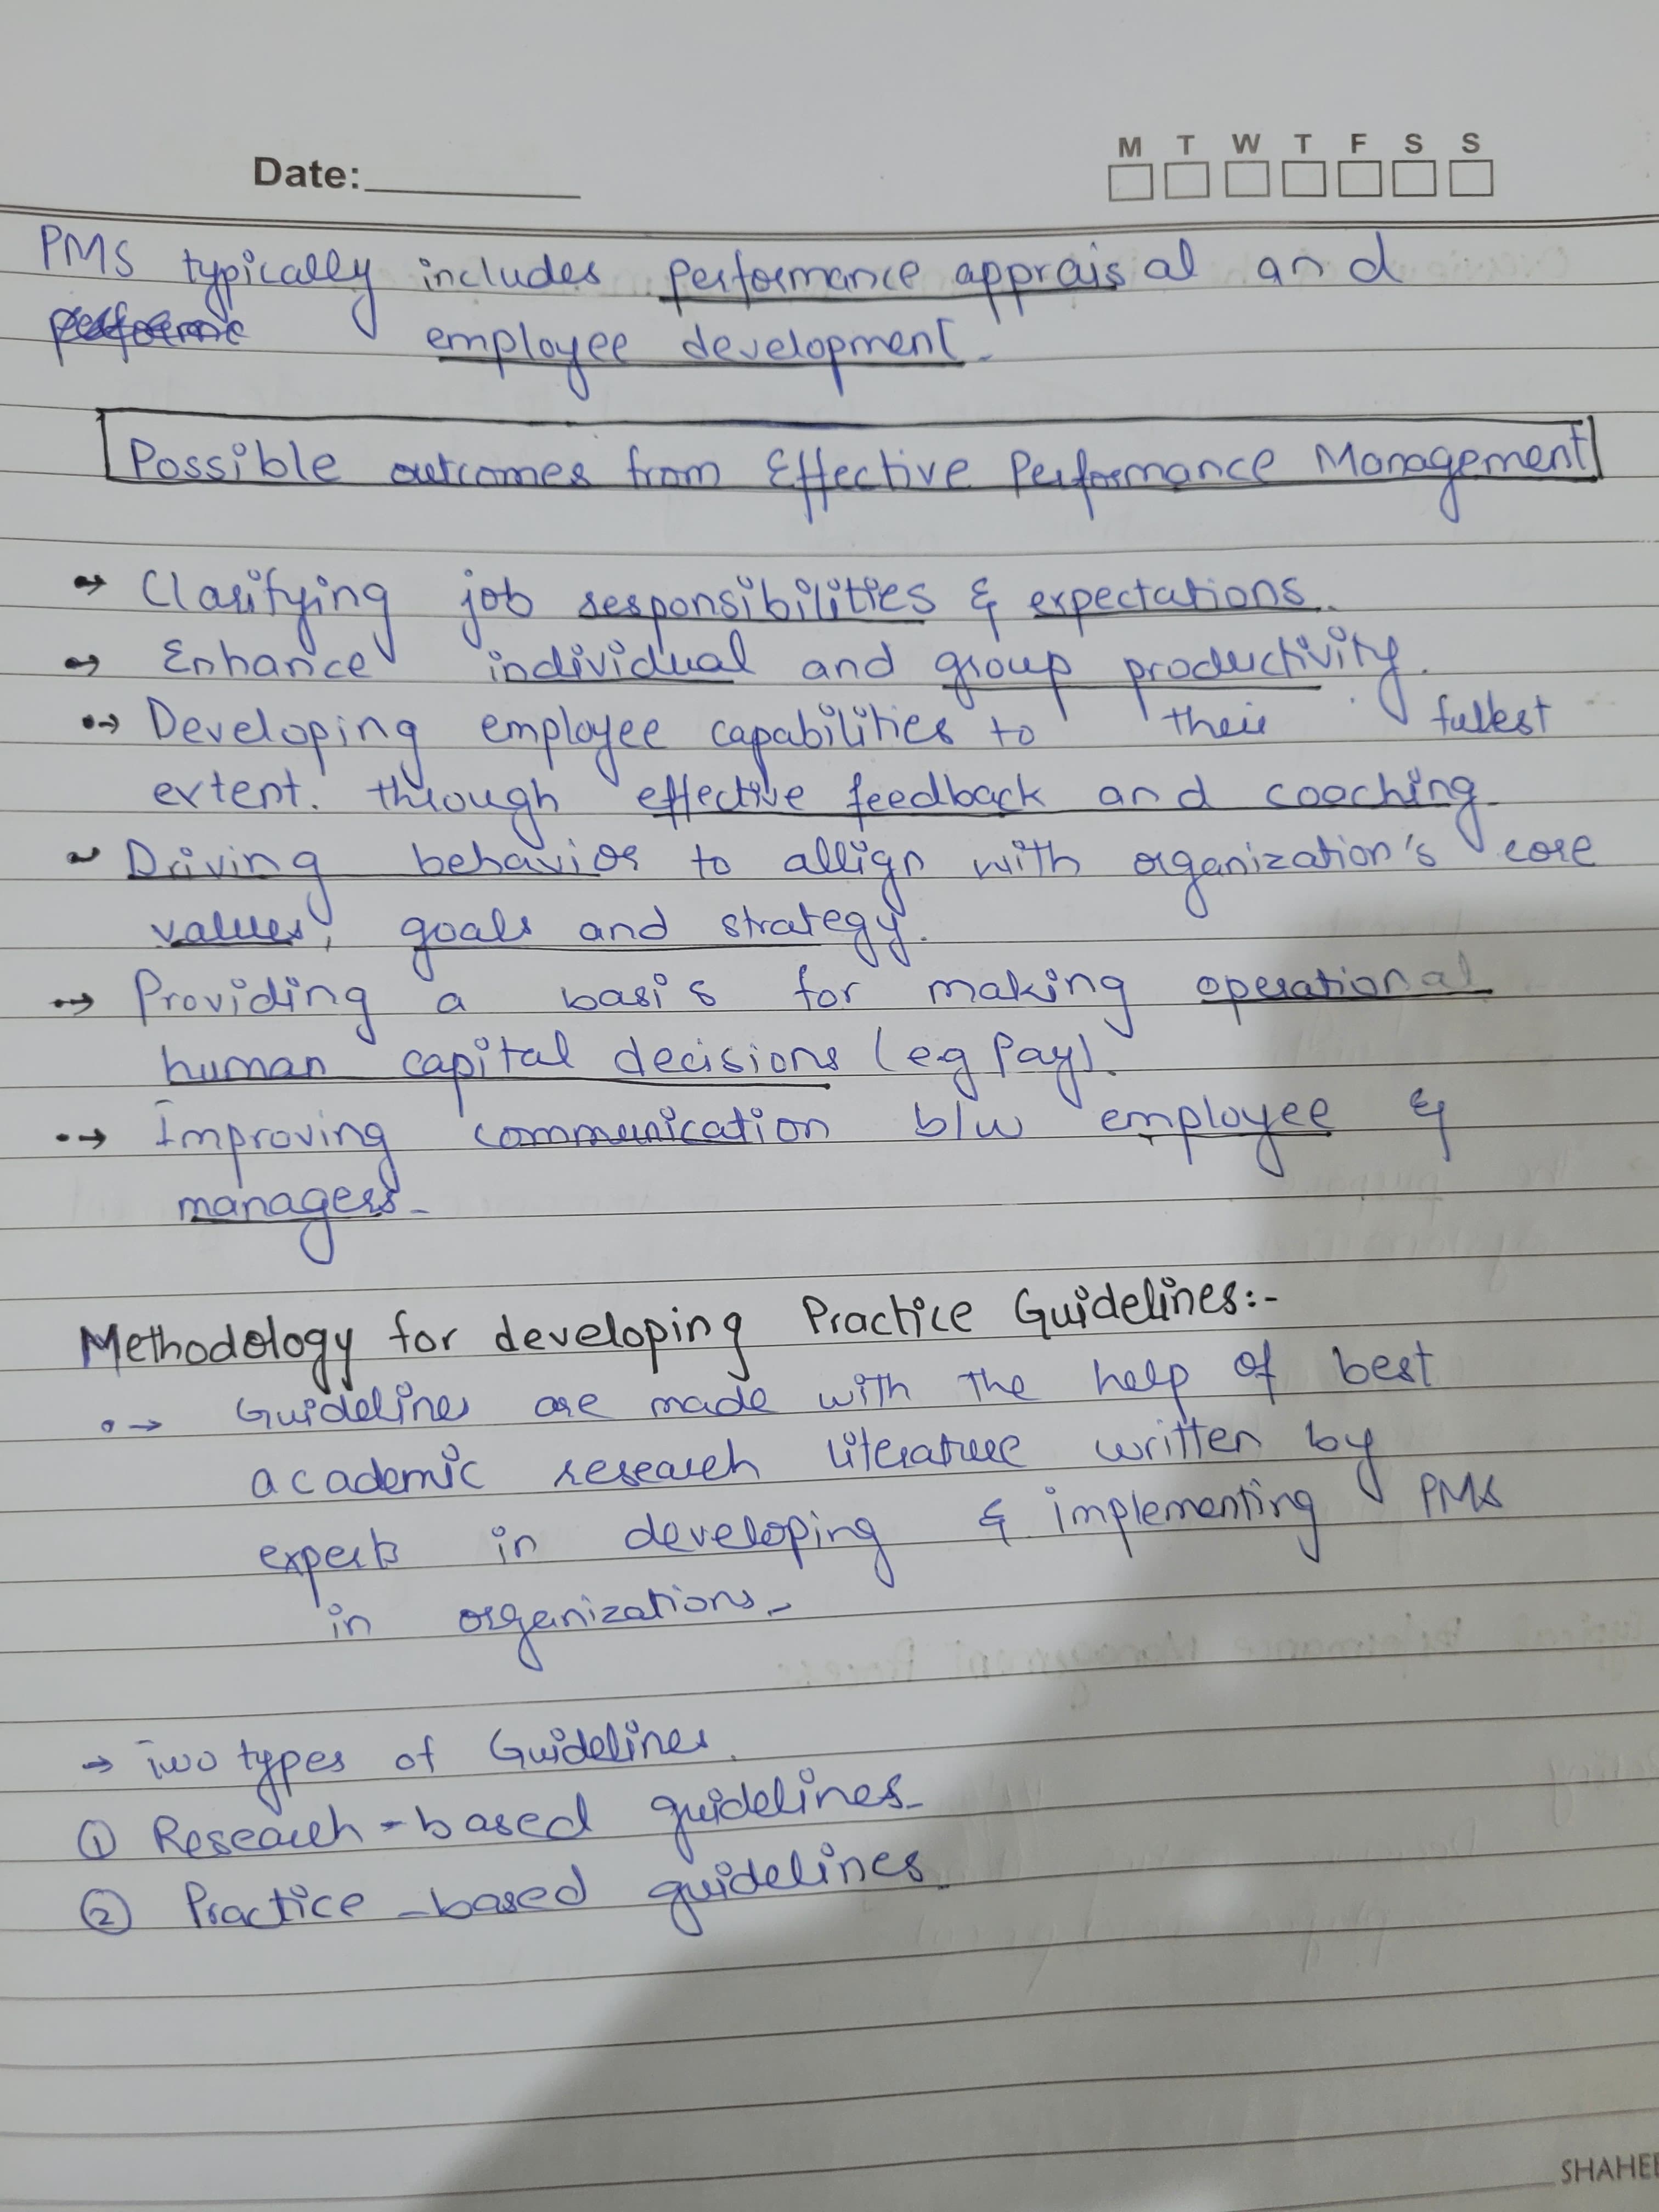 Date:
M T W T F S S
PMS typically includes performance appraisal and
employee development.
Possible outcomes from Effective Performance Management
→ Clarifying job responsibilities & expectations.
→ Enhance individual and group productivity.
→ Developing employee capabilities to their fullest
extent. through effective feedback and coaching
~ Driving behavior to allign with organization's core
values, goals and strategy.
→ Providing a basis for making operational
human capital decisions (eg Pay).
→ Improving communication b/w employee &
managers.
Methodology for developing Practice Guidelines:-
→ Guidelines are made with the help of best
academic research literature written by
experts in developing & implementing PMS
in organizations.
→ Two types of Guidelines.
① Research-based guidelines.
② Practice-based guidelines.